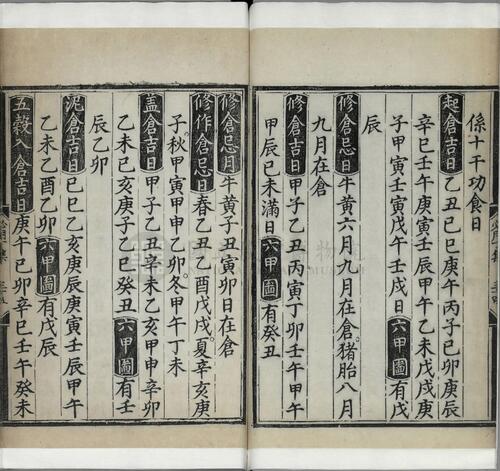 係十干功食日
起倉吉日乙丑己巳庚午丙子己卯庚辰
辛巳壬午庚寅壬辰甲午乙未戊戌庚
子甲寅壬寅庚戌壬戌日六甲圖有戊
辰
修倉忌日牛黄六月九月在倉猪胎八月
九月在倉
修倉吉日甲子乙丑丙寅丁卯壬午甲午
甲辰己未滿日六甲圖有癸丑
修倉忌月牛黄子丑寅卯日在倉
修作倉忌日春乙丑乙酉戊戌夏辛亥庚
子秋甲寅甲申乙卯冬甲午丁未
蓋倉吉日甲子乙丑辛未乙亥甲申辛卯
乙未己亥庚子乙巳癸丑六甲圖有壬
辰乙卯
泥倉吉日己巳乙亥庚辰庚寅壬辰甲午
乙未乙酉乙卯六甲圖有戊辰
五穀入倉吉日庚午己卯辛巳壬午癸未